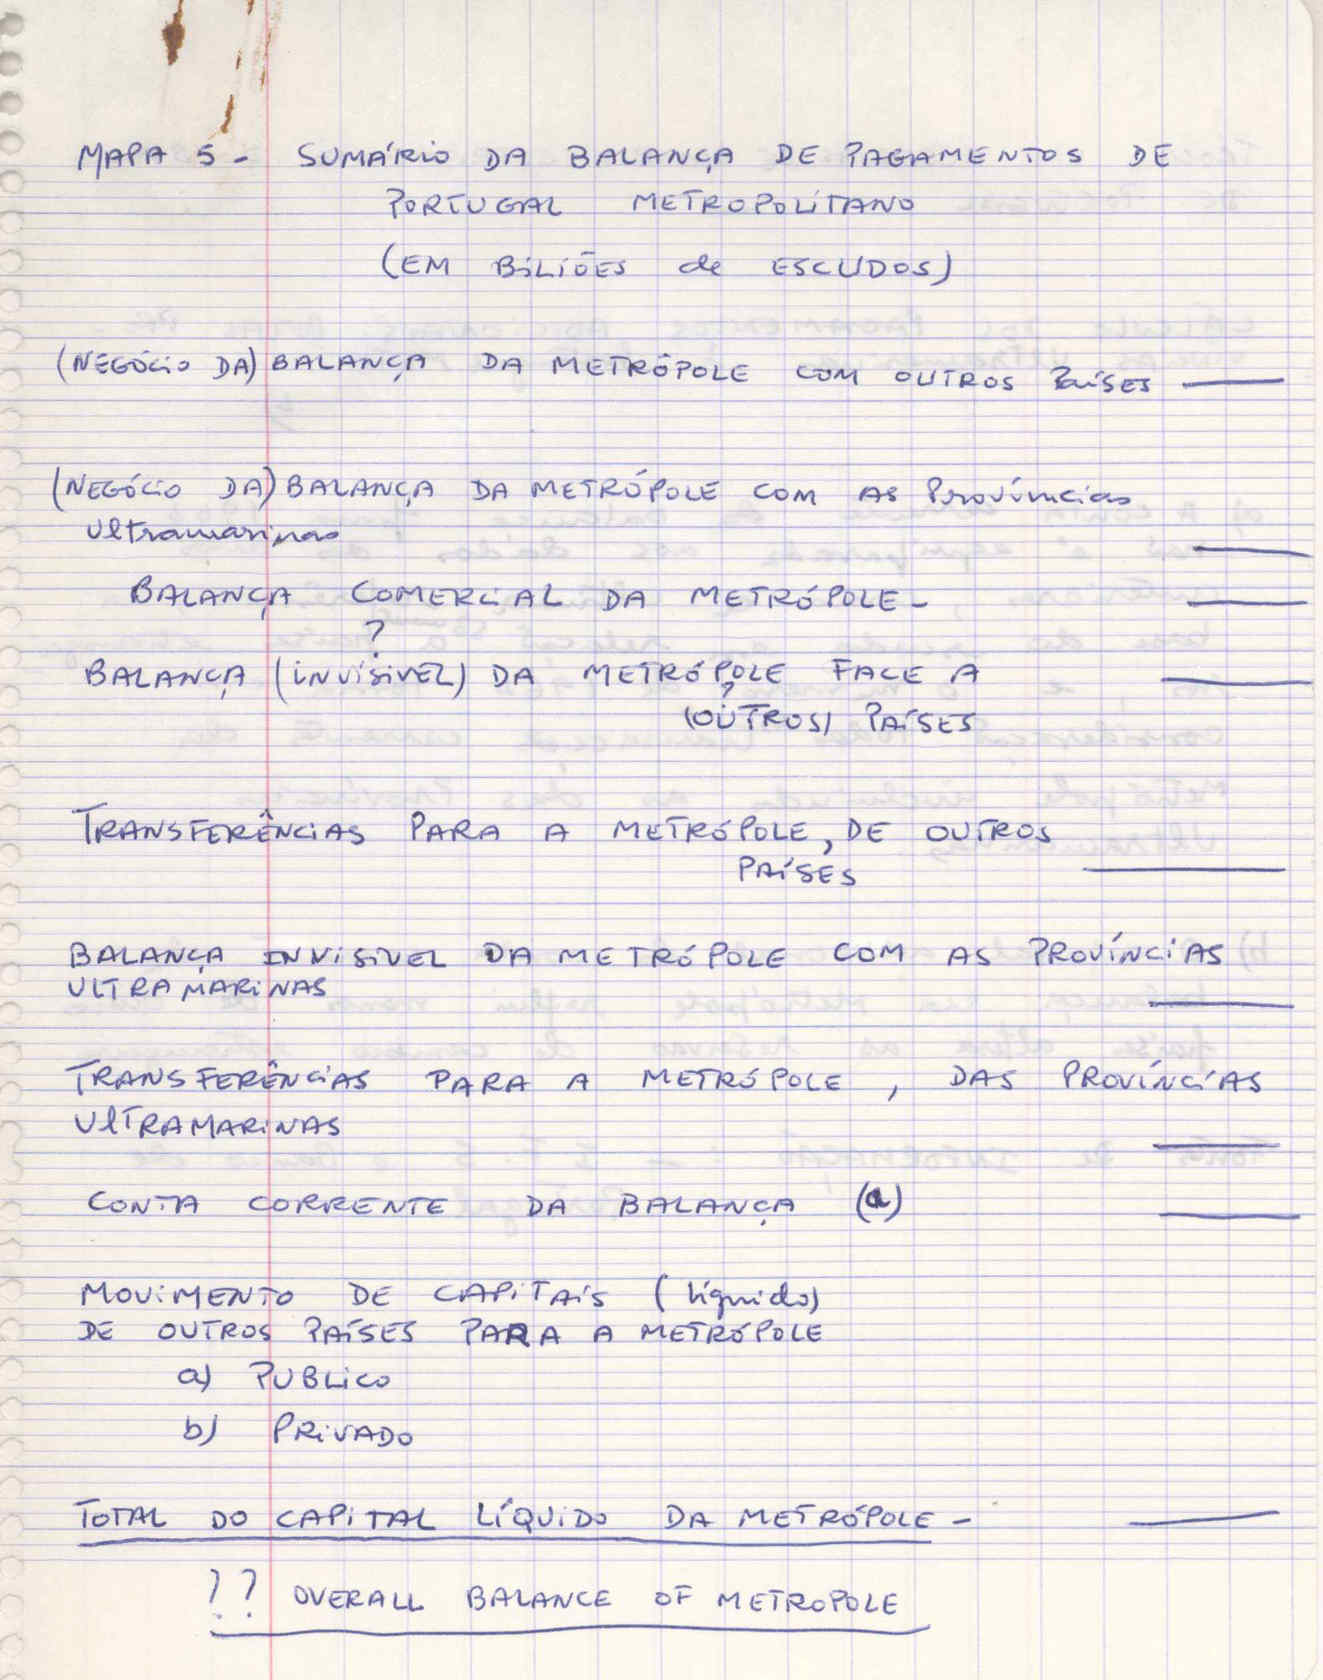 MAPA 5 - SUMÁRIO DA BALANÇA DE PAGAMENTOS DE
PORTUGAL METROPOLITANO
(EM BILIÕES de ESCUDOS)
(NEGÓCIO DA) BALANÇA DA METRÓPOLE COM OUTROS PAÍSES
(NEGÓCIO DA) BALANÇA DA METRÓPOLE COM AS Províncias
Ultramarinas
BALANÇA COMERCIAL DA METRÓPOLE -
?
BALANÇA (INVÍSIVEL) DA METRÓPOLE FACE A
?
(OUTROS) PAÍSES
TRANSFERÊNCIAS PARA A METRÓPOLE, DE OUTROS
PAÍSES
BALANÇA INVISIVEL DA METRÓPOLE COM AS PROVÍNCIAS
ULTRAMARINAS
TRANSFERÊNCIAS PARA A METRÓPOLE, DAS PROVÍNCIAS
ULTRAMARINAS
CONTA CORRENTE DA BALANÇA (a)
MOVIMENTO DE CAPITAIS (líquido)
DE OUTROS PAÍSES PARA A METRÓPOLE
a) PUBLICO
b) PRIVADO
TOTAL DO CAPITAL LÍQUIDO DA METRÓPOLE -
?? OVERALL BALANCE OF METROPOLE